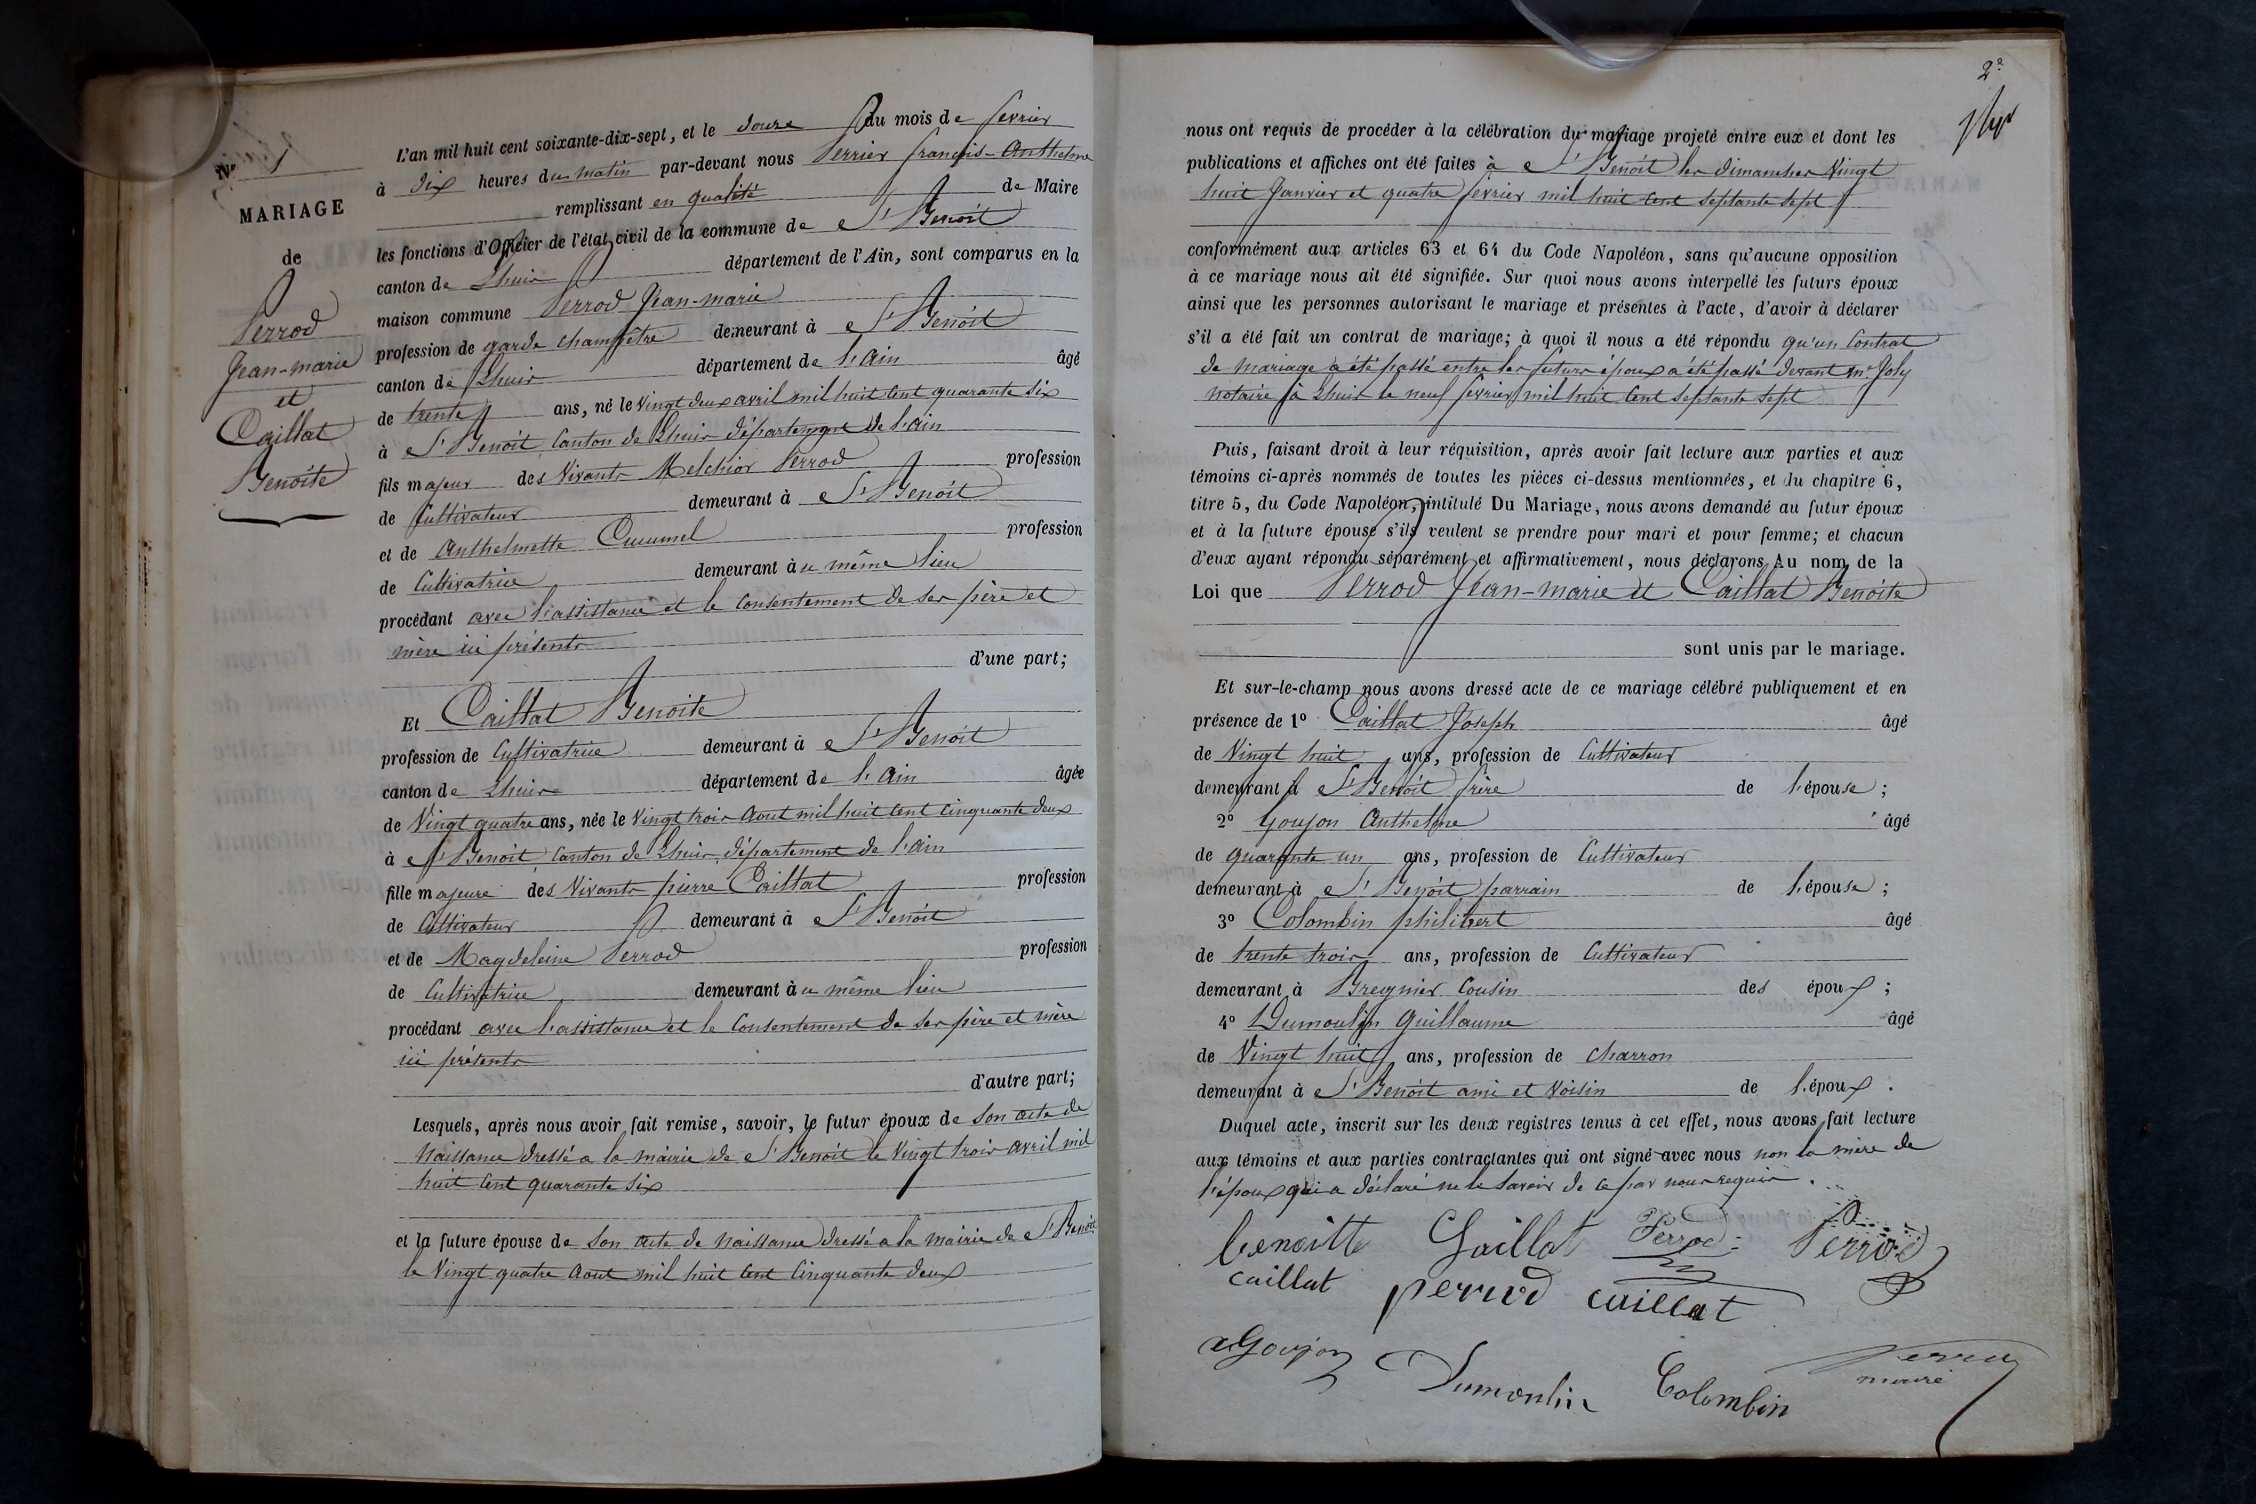 Nº 1
MARIAGE
de
Perrod
Jean-marie
et
Caillat
Benoite
L'an mil huit cent soixante-dix-sept, et le douze du mois de fevrier
à dix heures du matin par-devant nous Perrier françois-Anthelme
remplissant en qualité de Maire
les fonctions d'Officier de l'état civil de la commune de St Benoit
canton de Lhuis département de l'Ain, sont comparus en la
maison commune Perrod Jean-marie
profession de garde champêtre demeurant à St Benoit
canton de Lhuis département de l'ain âgé
de trente ans, né le vingt deux avril mil huit cent quarante six
à St Benoit Canton de Lhuis département de l'ain
fils majeur des vivants Melchior Perrod profession
de Cultivateur demeurant à St Benoit
et de Anthelmette Cucumel profession
de Cultivatrice demeurant au même lieu
procédant avec l'assistance et le consentement de ses père et
mère ici présents
d'une part;
Et Caillat Benoite
profession de Cultivatrice demeurant à St Benoit
canton de Lhuis département de l'ain âgée
de Vingt quatre ans, née le Vingt trois Aout mil huit cent Cinquante deux
à St Benoit Canton de Lhuis département de l'ain
fille majeure des vivants pierre Caillat profession
de Cultivateur demeurant à St Benoit
et de Magdeleine Perrod profession
de Cultivatrice demeurant au même lieu
procédant avec l'assistance et le Consentement de ses père et mère
ici présents
d'autre part;
Lesquels, après nous avoir fait remise, savoir, le futur époux de son acte de
Naissance dressé a la mairie de St Benoit le Vingt trois avril mil
huit cent quarante six
et la future épouse de son acte de naissance dressé a la mairie de St Benoit
le Vingt quatre Aout mil huit cent Cinquante deux
2e
nous ont requis de procéder à la célébration du mariage projeté entre eux et dont les
publications et affiches ont été faites à St Benoit les dimanches Vingt
huit Janvier et quatre fevrier mil huit cent septante sept
conformément aux articles 63 et 64 du Code Napoléon, sans qu'aucune opposition
à ce mariage nous ait été signifiée. Sur quoi nous avons interpellé les futurs époux
ainsi que les personnes autorisant le mariage et présentes à l'acte, d'avoir à déclarer
s'il a été fait un contrat de mariage; à quoi il nous a été répondu qu'un Contrat
de mariage a été passé entre les futurs époux a été passé devant me Joly
notaire à Lhuis le neuf fevrier mil huit Cent septante sept
Puis, faisant droit à leur réquisition, après avoir fait lecture aux parties et aux
témoins ci-après nommés de toutes les pièces ci-dessus mentionnées, et du chapitre 6,
titre 5, du Code Napoléon, intitulé Du Mariage, nous avons demandé au futur époux
et à la future épouse s'ils veulent se prendre pour mari et pour femme; et chacun
d'eux ayant répondu séparément et affirmativement, nous déclarons Au nom de la
Loi que Perrod Jean-marie et Caillat Benoite
sont unis par le mariage.
Et sur-le-champ nous avons dressé acte de ce mariage célébré publiquement et en
présence de 1º Caillat Joseph âgé
de Vingt huit ans, profession de Cultivateur
demeurant à St Benoit frère de l'épouse ;
2º Goujon Anthelme âgé
de quarante un ans, profession de Cultivateur
demeurant à St Benoit parrain de l'épouse ;
3º Colombin philibert âgé
de trente trois ans, profession de Cultivateur
demeurant à Bregnier Cousin des époux ;
4º Dumoulin Guillaume âgé
de Vingt huit ans, profession de charron
demeurant à St Benoit ami et voisin de l'époux .
Duquel acte, inscrit sur les deux registres tenus à cet effet, nous avons fait lecture
aux témoins et aux parties contractantes qui ont signé avec nous non la mère de
l'époux qui a déclaré ne le savoir de ce par nous requis.
benoitte Caillat Perrod Perrod
caillat perrod caillat
a Goujon Dumoulin Colombin
maire